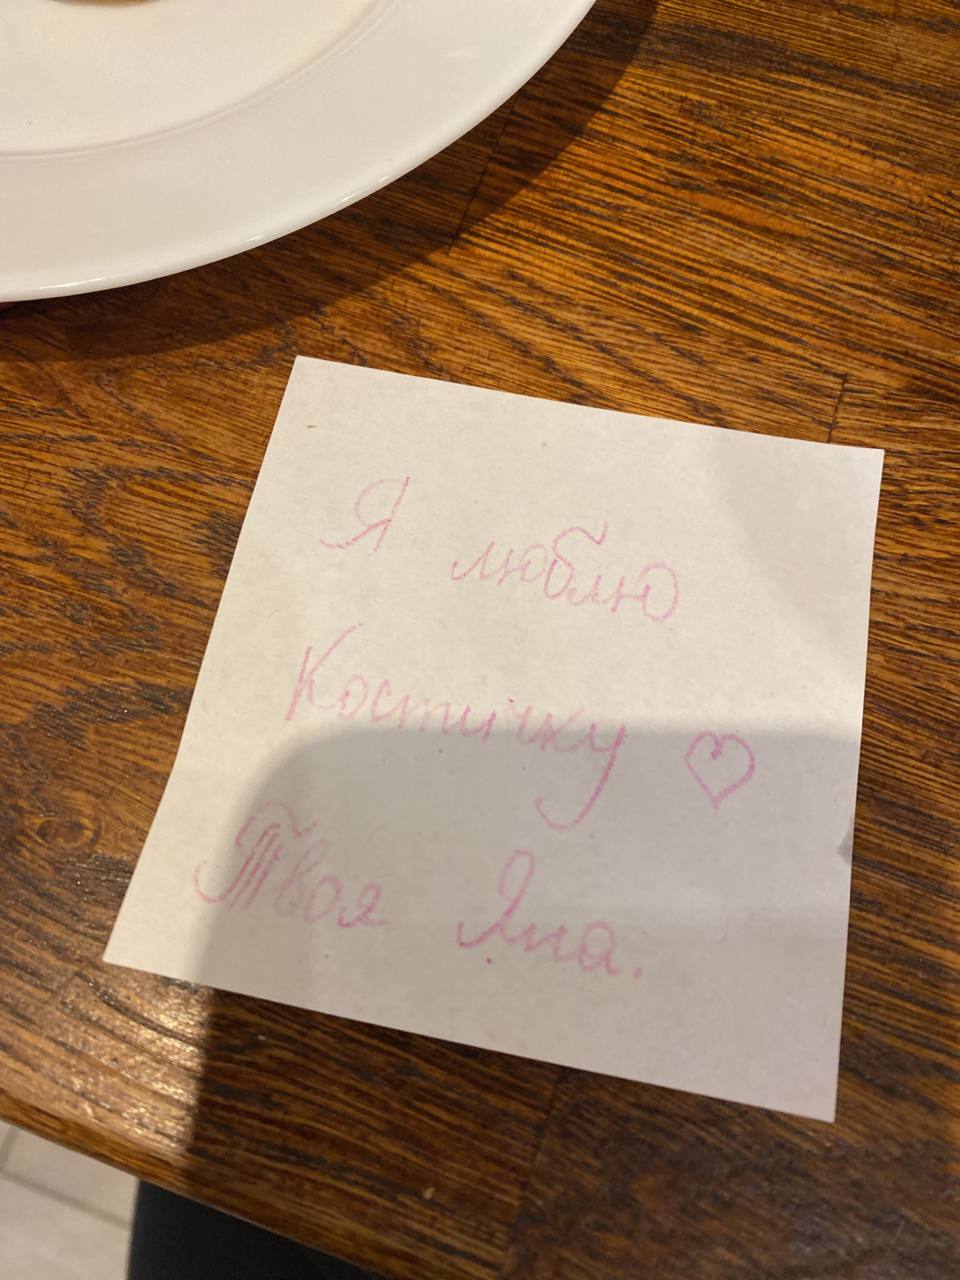 Я люблю
Костичку ♡
Твоя Яна.